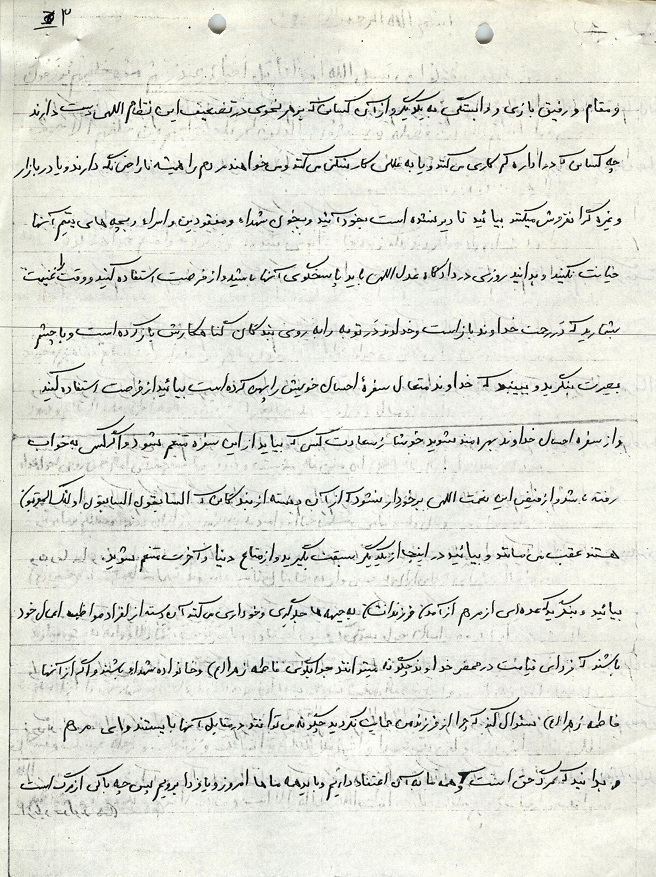 ۳
و مقام و رفیق بازی و وابستگی به یکدیگر و از آن کسان که بر هر نحوی در تضعیف این نظام اللهی دست دارند
چه کسانی که در اداره کم کاری می کنند و یا به خاطر کار شکنی می کنند و می خواهند مردم را همیشه ناراضی نگه دارند و یا در بازار
و غیره گرانفروشی میکنند بیائید تا دیر نشده است بخود آئید و بخون شهداء و مفقودین و اسراء و بچه های یتیم آنها
خیانت نکنید و بدانید روزی در دادگاه عدل اللهی باید پاسخگوی آنها باشید و از فرصت استفاده کنید و وقت را غنیمت
بشمارید که در رحمت خداوند باز است و خداوند در توبه را به روی بندگان گناهکارش باز کرده است و با چشم
بصیرت بنگرید و ببینید که خداوند متعال سفرهٔ احسان خویش را پهن کرده است بیائید از فرصت استفاده کنید
و از سفره احسان خداوند بهره مند شوید خوشا به سعادت کسی که بیاید از این سفره متنعم شود و اگر کسی به خواب
رفته باشد و از فیض این نعمت اللهی برخوردار نشود که از آن دسته از بندگان که السابقون السابقون اولئک المقربون
هستند عقب می مانند و بیائید در اینجا از یکدیگر سبقت بگیرید و از متاع دنیا و آخرت متنعم شوید.
بیائید و بنگرید که عده ای از مردم از آمدن فرزندانشان به جبهه ها جلوگیری و خودداری می کنند آن دسته از افراد مواظب اعمال خود
باشند که فردای قیامت در محضر خداوند چگونه میتوانند جوابگوی فاطمه زهرا(س) و خانواده شهداء باشند و اگر از آنها
فاطمه زهرا(س) سئوال کند که چرا از فرزندم حمایت نکردید چگونه می توانند در مقابل آنها بایستند و ای مردم
بدانید که مرگ حق است و همه ما به آن اعتقاد داریم و باید همه ما ها امروز و یا فردا برویم پس چه باکی از مرگ است